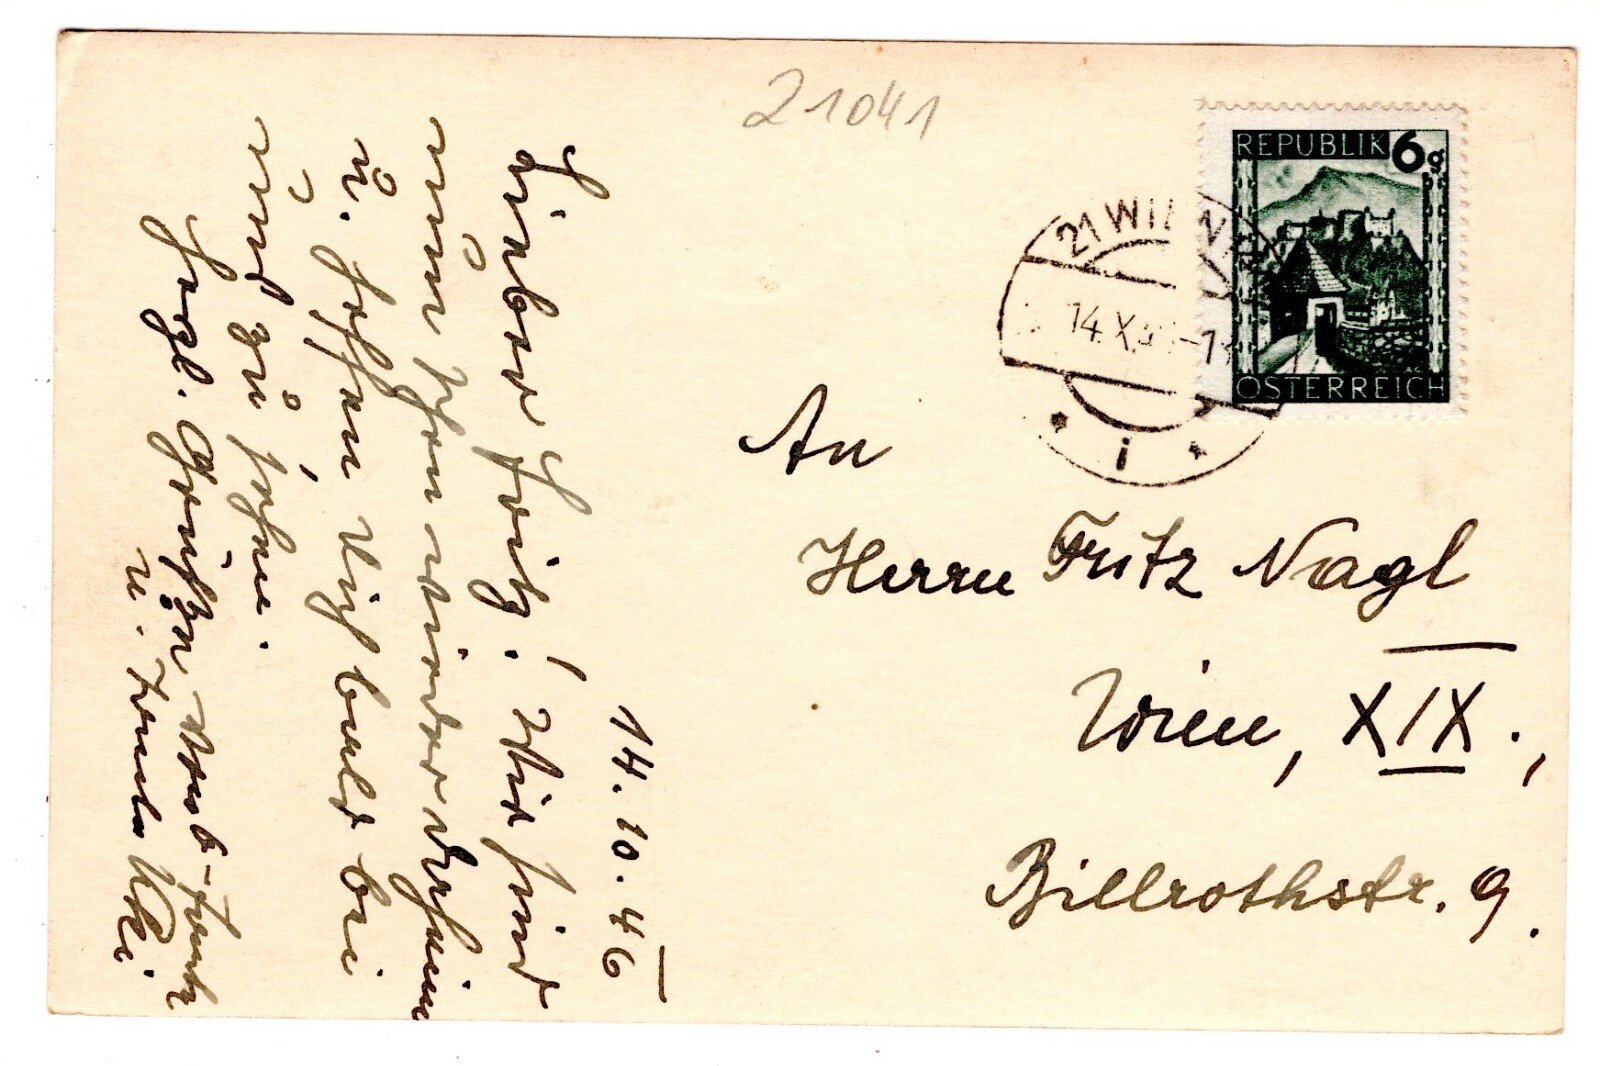 21041
REPUBLIK 6g
ÖSTERREICH
21 WIEN
14.X.
i
An
Herrn Fritz Nagl
Wien, XIX.,
Billrothstr. 9.
14.10.46
Lieber Fritz! Wir sind
nun schon wieder daheim
u. hoffen Dich bald bei
uns zu sehen.
Herzl. Grüße von
u.